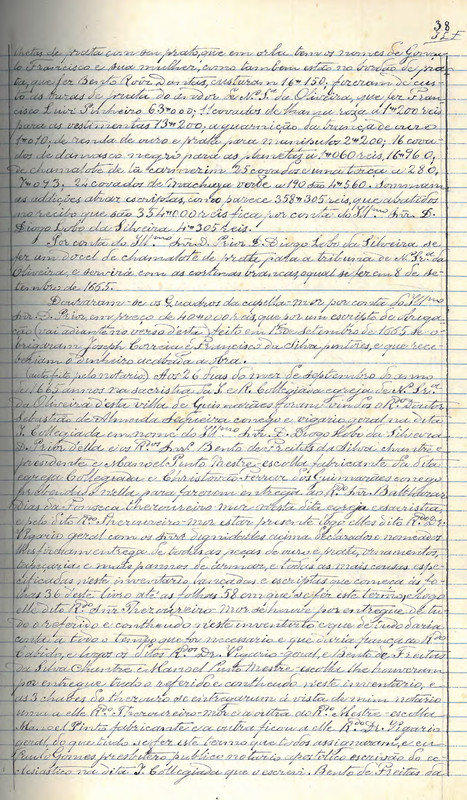 38
chetas de prata com seu prato, que em orla tem os nomes de Gonça-
lo Francisco e sua mulher; como tambem estão no bordão de pra-
ta, que fez Bento Roiz Dantas, custaram 16$150, fizeram de cus-
to as varas de prata do andor de N.ª S.ª da Oliveira, que fez Fran-
cisco Luiz Pinheiro 63$000; 11 covados de lhama roza a 1$200 reis
para as vestimentas 13$200; a guarnição da frança de ouro
de renda de ouro e prata para manipulos 2$200; 16 cova-
dos de damasco negro para as planetas a 1$060 reis, 16$960,
de chamalote de lã carmezim 25 covados e uma terça a 280,
7$093; 24 covados de verde a 190 são 4$560. Sommam
as addições atraz escriptas, como parece 358$305 reis, que abatidos
no recibo que são 354$000 reis fica por conta do Ill.mo Snr. D.
Diogo Lobo da Silveira 4$305 reis.
Por conta do Ill.mo Snr. D. Prior D. Diogo Lobo da Silveira se
fez um docel de chamalote de prata para a tribuna de N.ª Sr.ª da
Oliveira, e serviris com as cortinas brancas o qual se fez em 8 de se-
tembro de 1665.
Douraram-se os Quadros da capella-mór por conta do Ill.mo
Snr. D. Prior, em preço de 40$000 reis, que por um escripto de obriga-
ção (vai adiante no verso desta) feito em 1 de setembro de 1665 se o-
brigaram Joseph Correia e Francisco da Silva pintores, e que rece-
beriam o dinheiro acabada a obra.
(Manifesto pelo notario) Aos 26 dias do mez de septembro do anno
de 1665 annos na sacristia da I. e R. Collegiada egreja de N.ª Sr.ª
da Oliveira d'esta villa de Guimarães foram vindos o R.do Doutor
Sebastião de Almeida Sapieira conego e vigario geral na dita
I. Collegiada em nome do Ill.mo Snr. D. Diogo Lobo da Silveira
D. Prior della e os R.dos Snrs. Bento de Freitas da Silva chantre e
presidente e Manoel Pinto Mestre-escolla fabricante da dita
egreja Collegiada e Christovão Ferraz dos Guimarães conego
prebendado nella para fazerem entrega ao R.do Snr. Balthazar
Dias da Fonseca thezoureiro-mór nesta dita egreja e sacristia,
e pelo dito R.do Thezoureiro-mór estar presente logo elles dito R.do Dr.
Vigario geral com os Snrs. dignidades acima declarados e nomeados
lhes fizeram entrega de todas as peças de ouro e prata, ornamentos,
e mais pannos de armar, e todas as mais cousas espe-
cificadas neste inventario lançadas e escriptas que começa ás fo-
lhas 36 deste livro até as folhas 58 em que se fez este termo; e logo
elle dito R.do Snr. Thezoureiro Mór se houve por entregue de tu-
do o referido e contheudo neste inventario e que de tudo daria
conta a todo o tempo que fôr necessario e que daria fiança ao R.do
Cabido, e logo os ditos R.dos Dr. Vigario-geral, e Bento de Freitas
da Silva Chantre e Manoel Pinto Mestre-escolla lhe houveram
por entregue tudo o referido e contheudo neste inventario, e
as 3 chaves do thezouro se entregaram á vista de mim notario
uma a elle R.do Thezoureiro-Mór e a outra ao R.do Mestre-escolla
Manoel Pinto fabricante e a outra ficou a elle R.do Dr. Vigario
geral, do que tudo se fez este termo que todos assignaram, e eu
Paulo Gomes presbitero publico notario apostolico escrivão do ec-
clesiastico na dita I. Collegiada que o escrevi. Bento de Freitas da